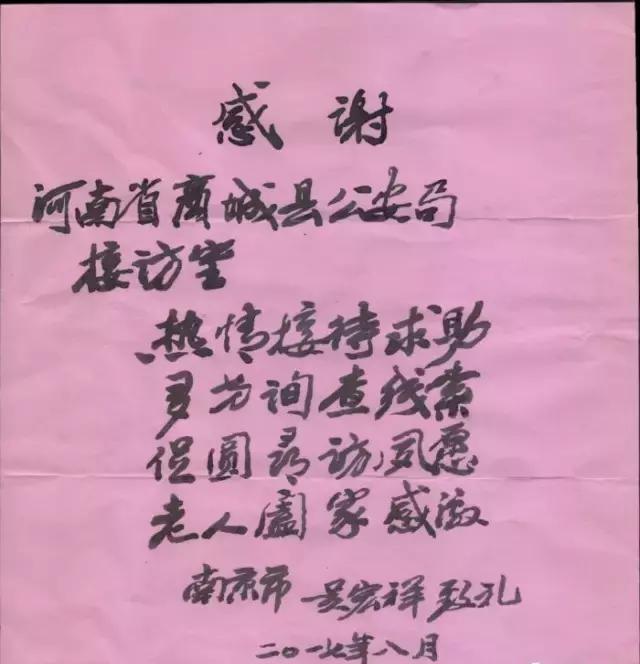 感谢
河南省商城县公安局
接访室
热情接待求助
多方询查线索
促圆寻访夙愿
老人阖家感激
南京市 吴宏祥 致礼
二〇一七年八月